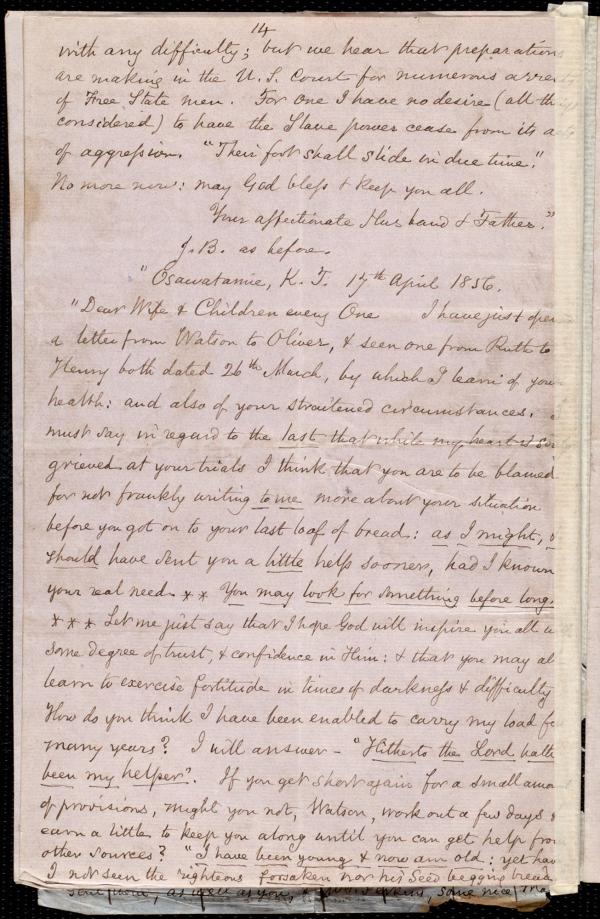 14
with any difficulty; but we hear that preparations
are making in the U. S. Court for numerous arrests
of Free State men. For one I have no desire (all things
considered) to have the Slave power cease from its acts
of aggression. "Their foot shall slide in due time."
No more now: may God bless & keep you all.
Your affectionate Husband & Father."
J. B. as before.
"Osawatamie, K. T. 17th April 1856.
"Dear Wife & Children every One I have just open
a letter from Watson to Oliver, & seen one from Ruth to
Henry both dated 26th March, by which I learn of your
health: and also of your straitened circumstances.
must say in regard to the last that while my heart is
grieved at your trials I think that you are to be blamed
for not frankly writing to me more about your situation
before you got on to your last loaf of bread: as I might, &
should have sent you a little help sooner, had I known
your real need ** You may look for something before long.
*** Let me just say that I hope God will inspire you all
some degree of trust, & confidence in Him: & that you may al
learn to exercise fortitude in times of darkness & difficulty
How do you think I have been enabled to carry my load fo
many years? I will answer - "Hitherto the Lord hath
been my helper". If you get short again for a small amou
of provisions, might you not, Watson, work out a few days &
earn a little to keep you along until you can get help from
other sources? "I have been young & now am old: yet hav
I not seen the righteous forsaken nor his Seed begging bread
as well as you, some nice